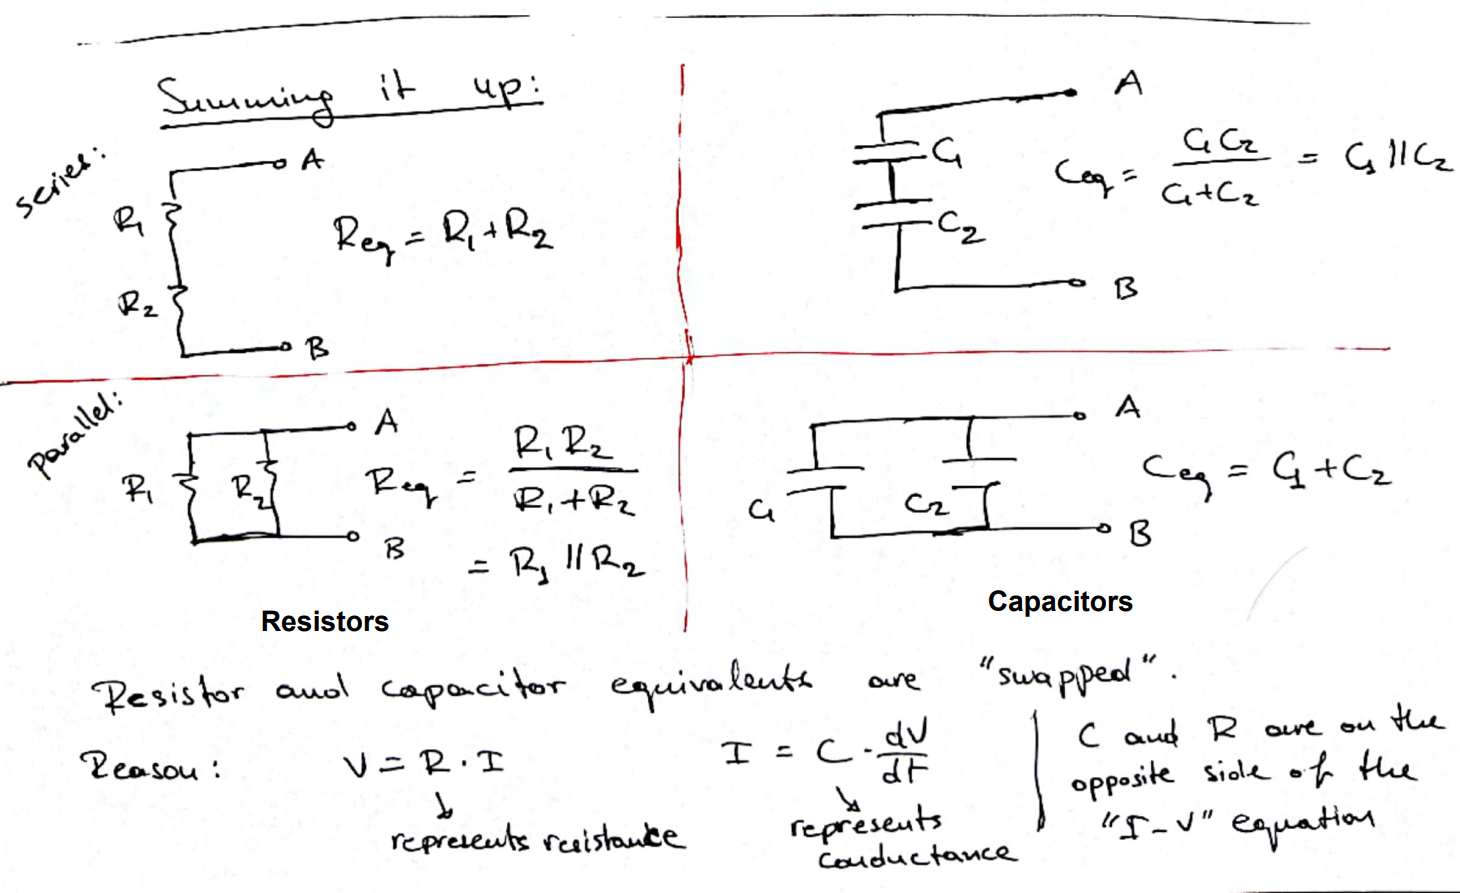 Summing it up:
series:
A
R1
R2
B
Req = R1 + R2
A
C1
C2
B
Ceq = C1 C2 / C1 + C2 = C1 || C2
parallel:
A
R1
R2
B
Req = R1 R2 / R1 + R2
= R1 || R2
Resistors
A
C1
C2
B
Ceq = C1 + C2
Capacitors
Resistor and capacitor equivalents are "swapped".
Reason: V = R · I
represents resistance
I = C · dV/dt
represents
conductance
C and R are on the
opposite side of the
"I-V" equation